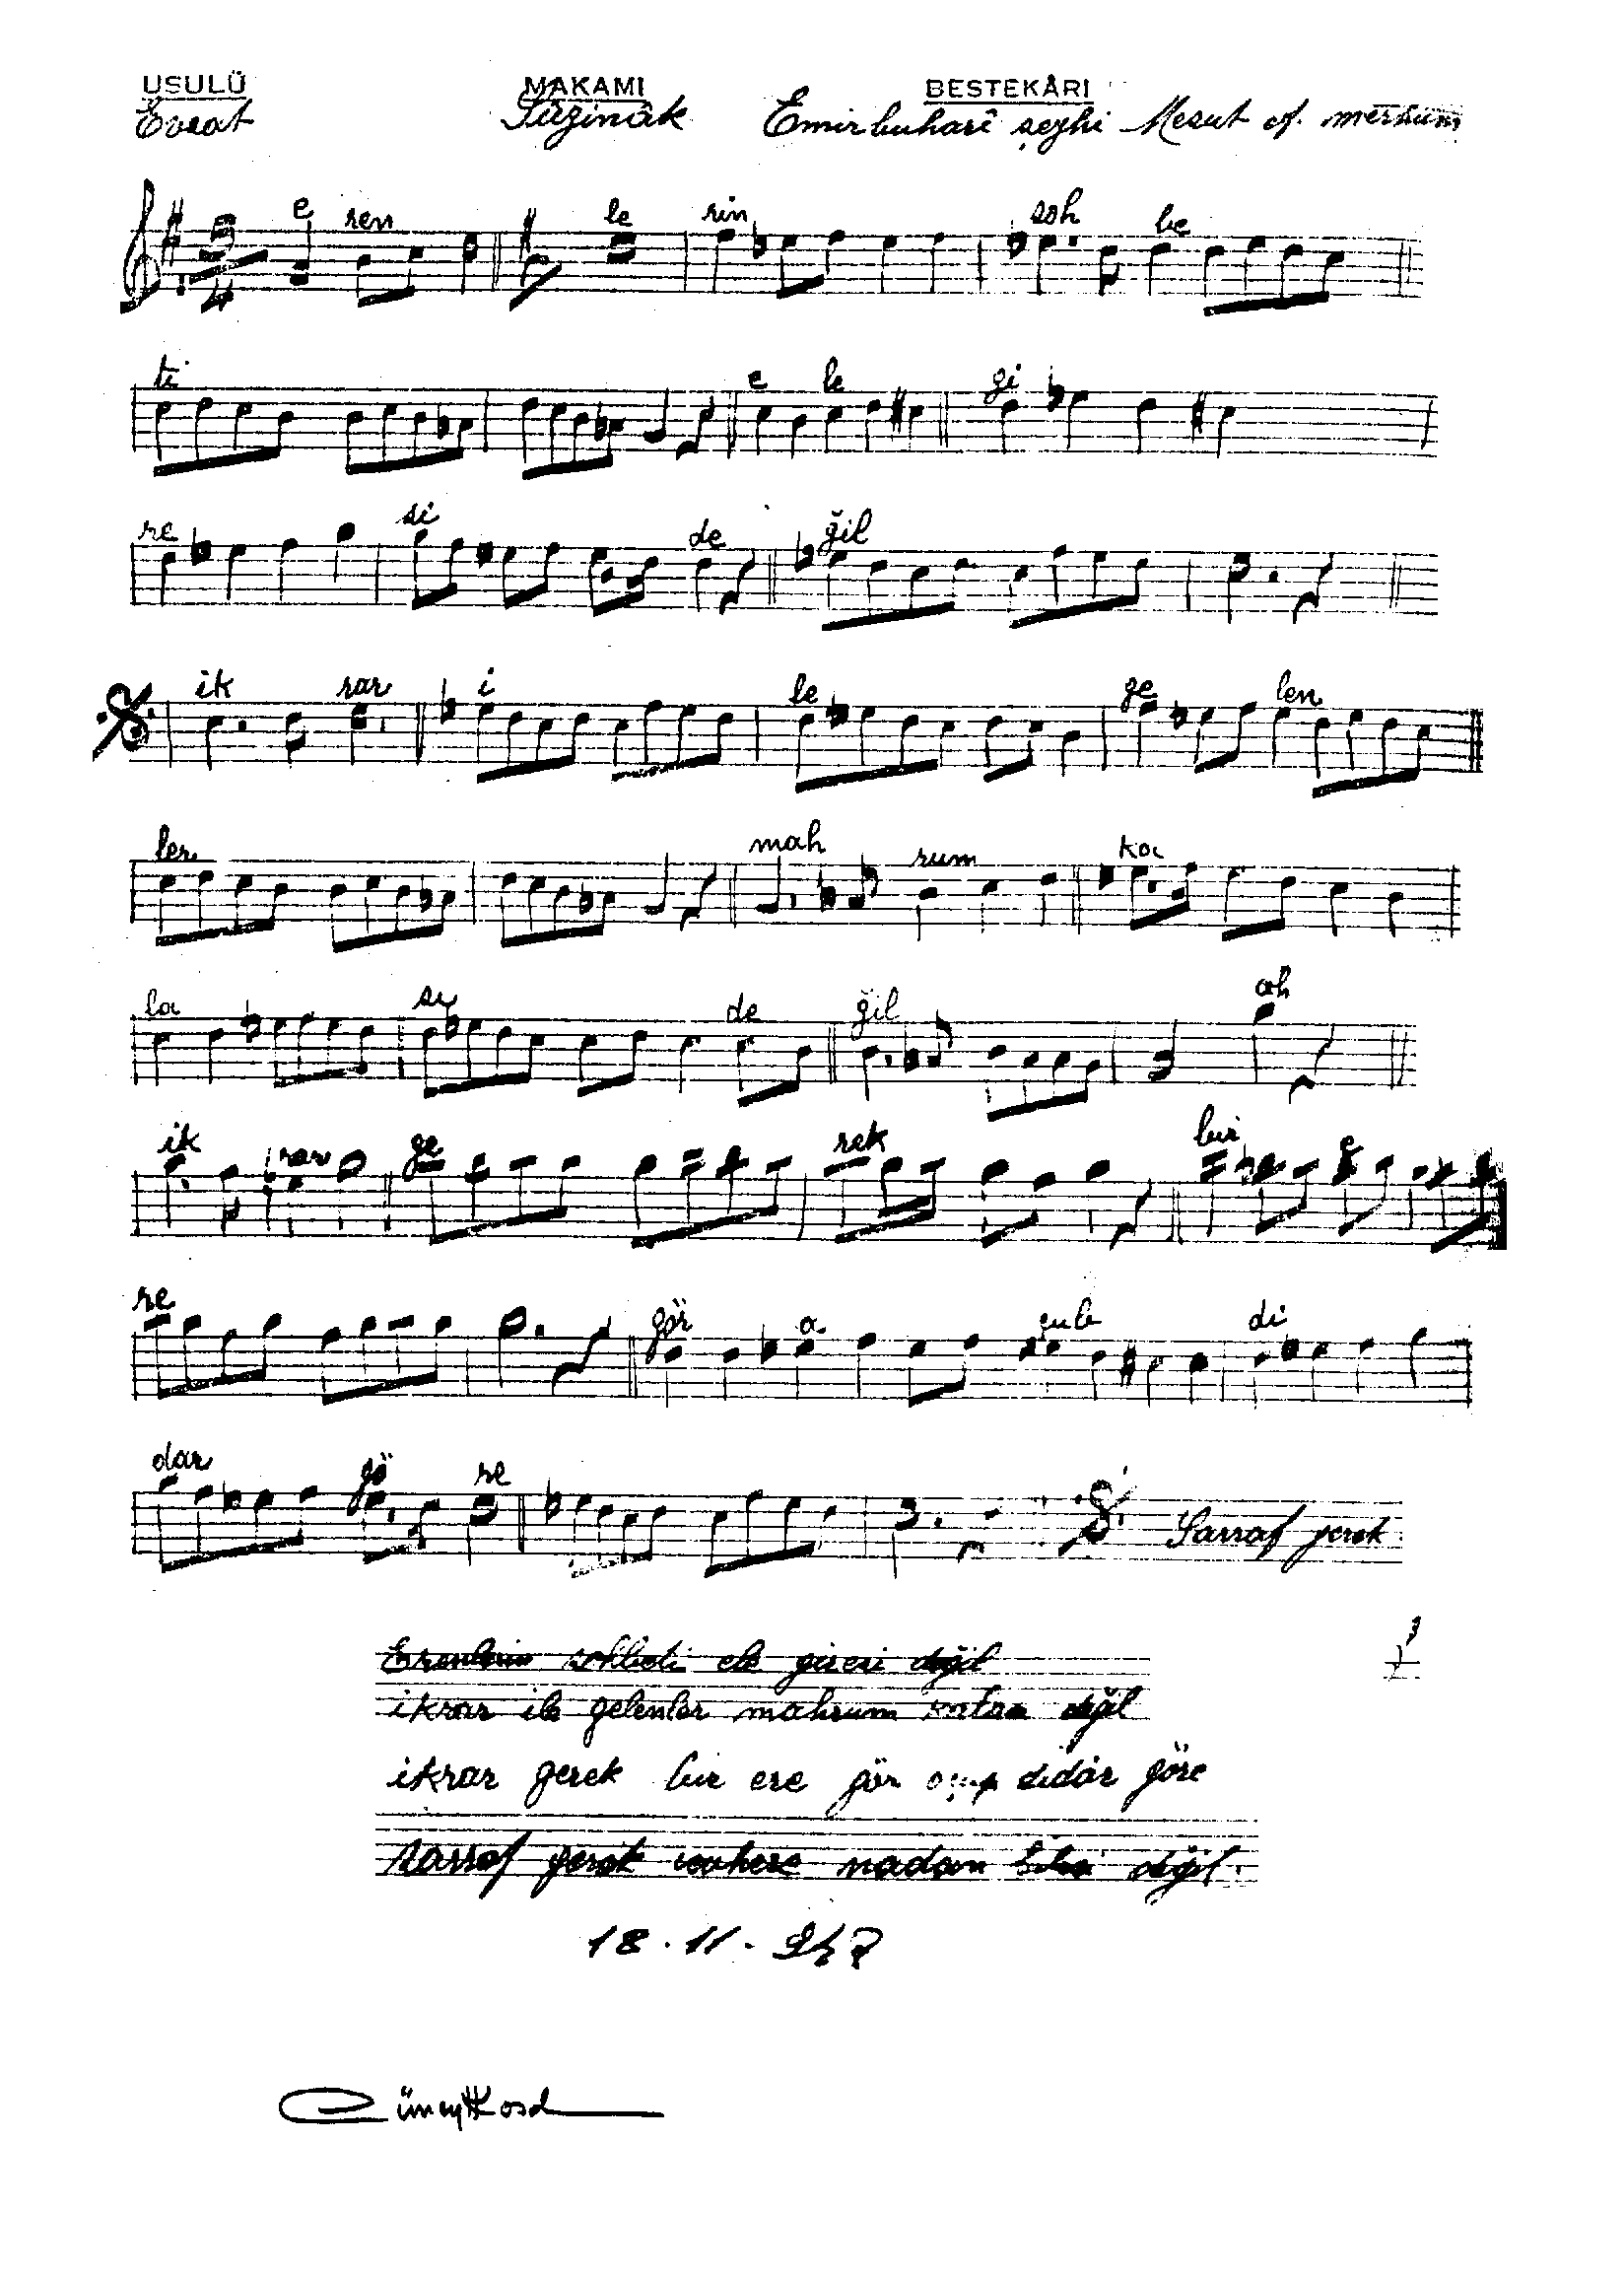 USULÜ MAKAMI BESTEKÂRI
Evsat Sûzinâk Emirbuharî şeyhi Mesut ef. merhum
e ren le rin soh be
ti e le gi
re si de ğil
ik rar i le ge len
ler mah rum ka
la sı de ğil ah
ik rar ge rek bir e
re gör a çıla di
dar gö re
Sarraf gerek
Erenlerin sohbeti ele giresi değil
ikrar ile gelenler mahrum kalası değil
ikrar gerek bir ere gör didâr göre
sarraf gerek cevhere nadan değil.
18.11.
Cüneyt Kosal